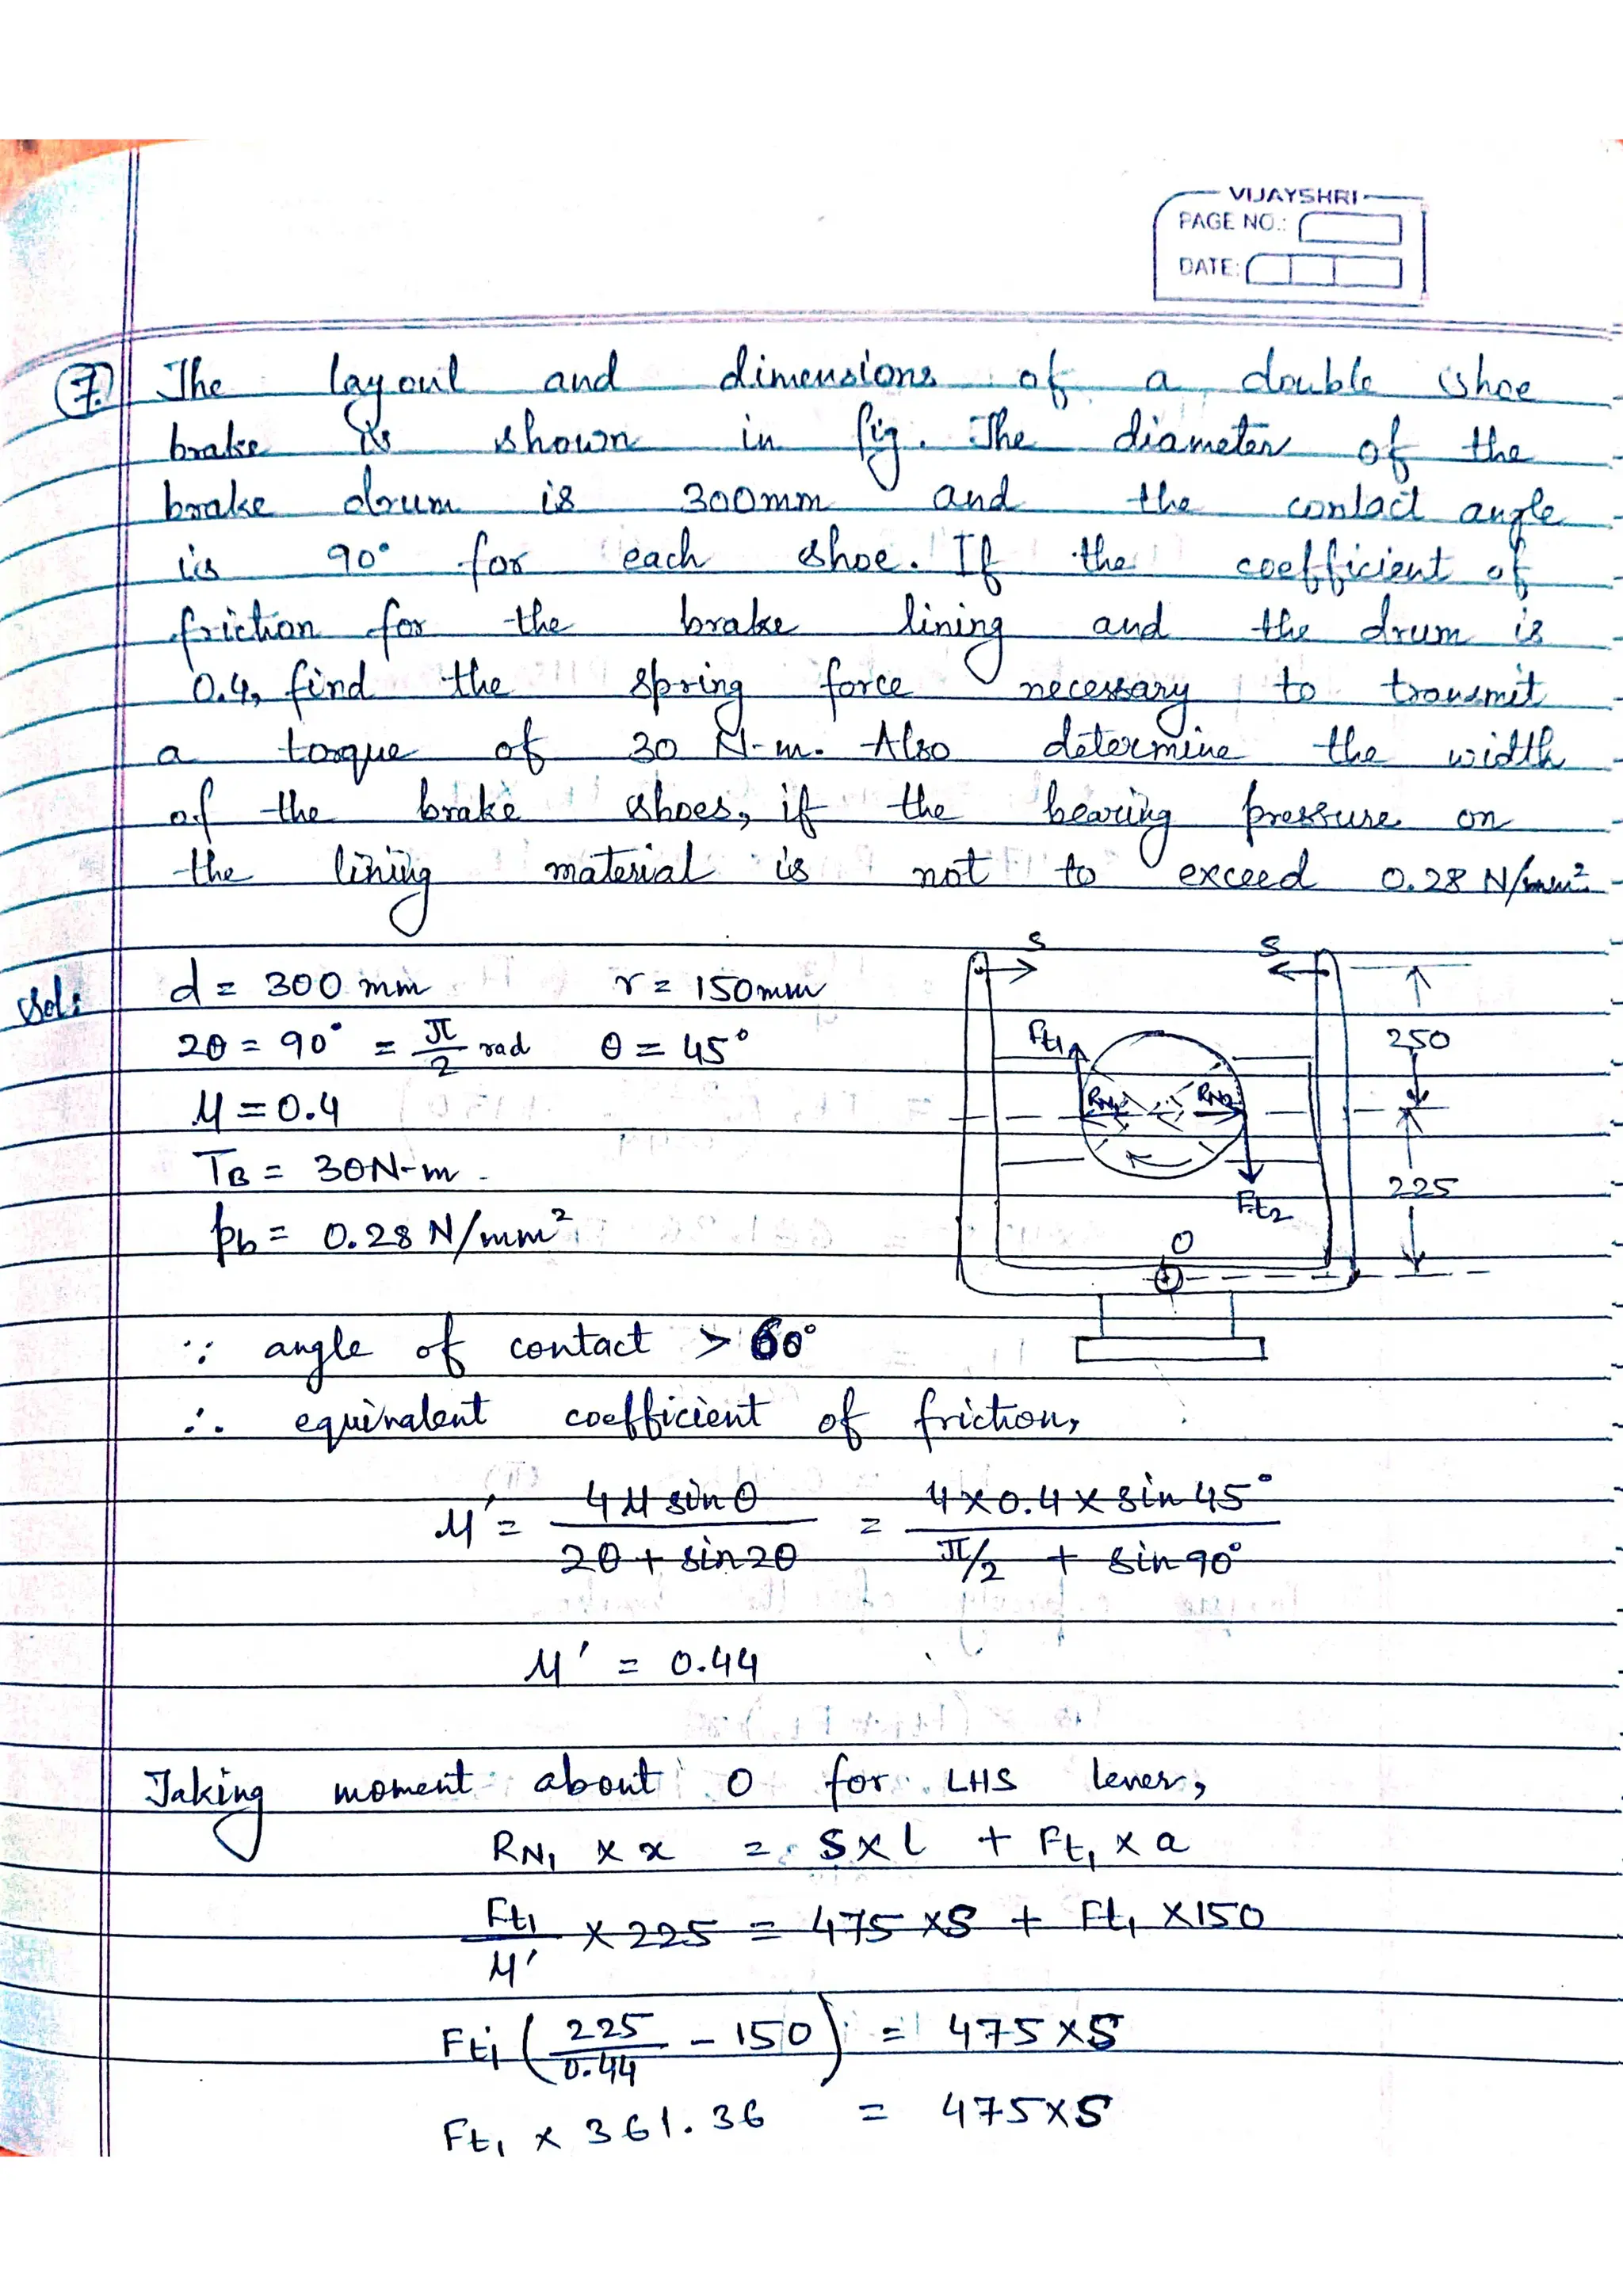 VIJAYSHRI
PAGE NO.:
DATE:
7. The layout and dimensions of a double shoe
brake is shown in fig. The diameter of the
brake drum is 300mm and the contact angle
is 90° for each shoe. If the coefficient of
friction for the brake lining and the drum is
0.4, find the spring force necessary to transmit
a torque of 30 N-m. Also determine the width
of the brake shoes, if the bearing pressure on
the lining material is not to exceed 0.28 N/mm²
Sol:
d = 300 mm r = 150mm
2θ = 90° = π/2 rad θ = 45°
μ = 0.4
TB = 30N-m.
pb = 0.28 N/mm²
S S
Ft1
250
RN1 RN2
225
Ft2
O
∵ angle of contact > 60°
∴ equivalent coefficient of friction,
μ' = 4μ sinθ / 2θ + sin2θ = 4 × 0.4 × sin 45° / π/2 + sin 90°
μ' = 0.44
Taking moment about O for LHS lever,
RN1 × x = S × l + Ft1 × a
Ft1/μ' × 225 = 475 × S + Ft1 × 150
Ft1 (225/0.44 - 150) = 475 × S
Ft1 × 361.36 = 475 × S